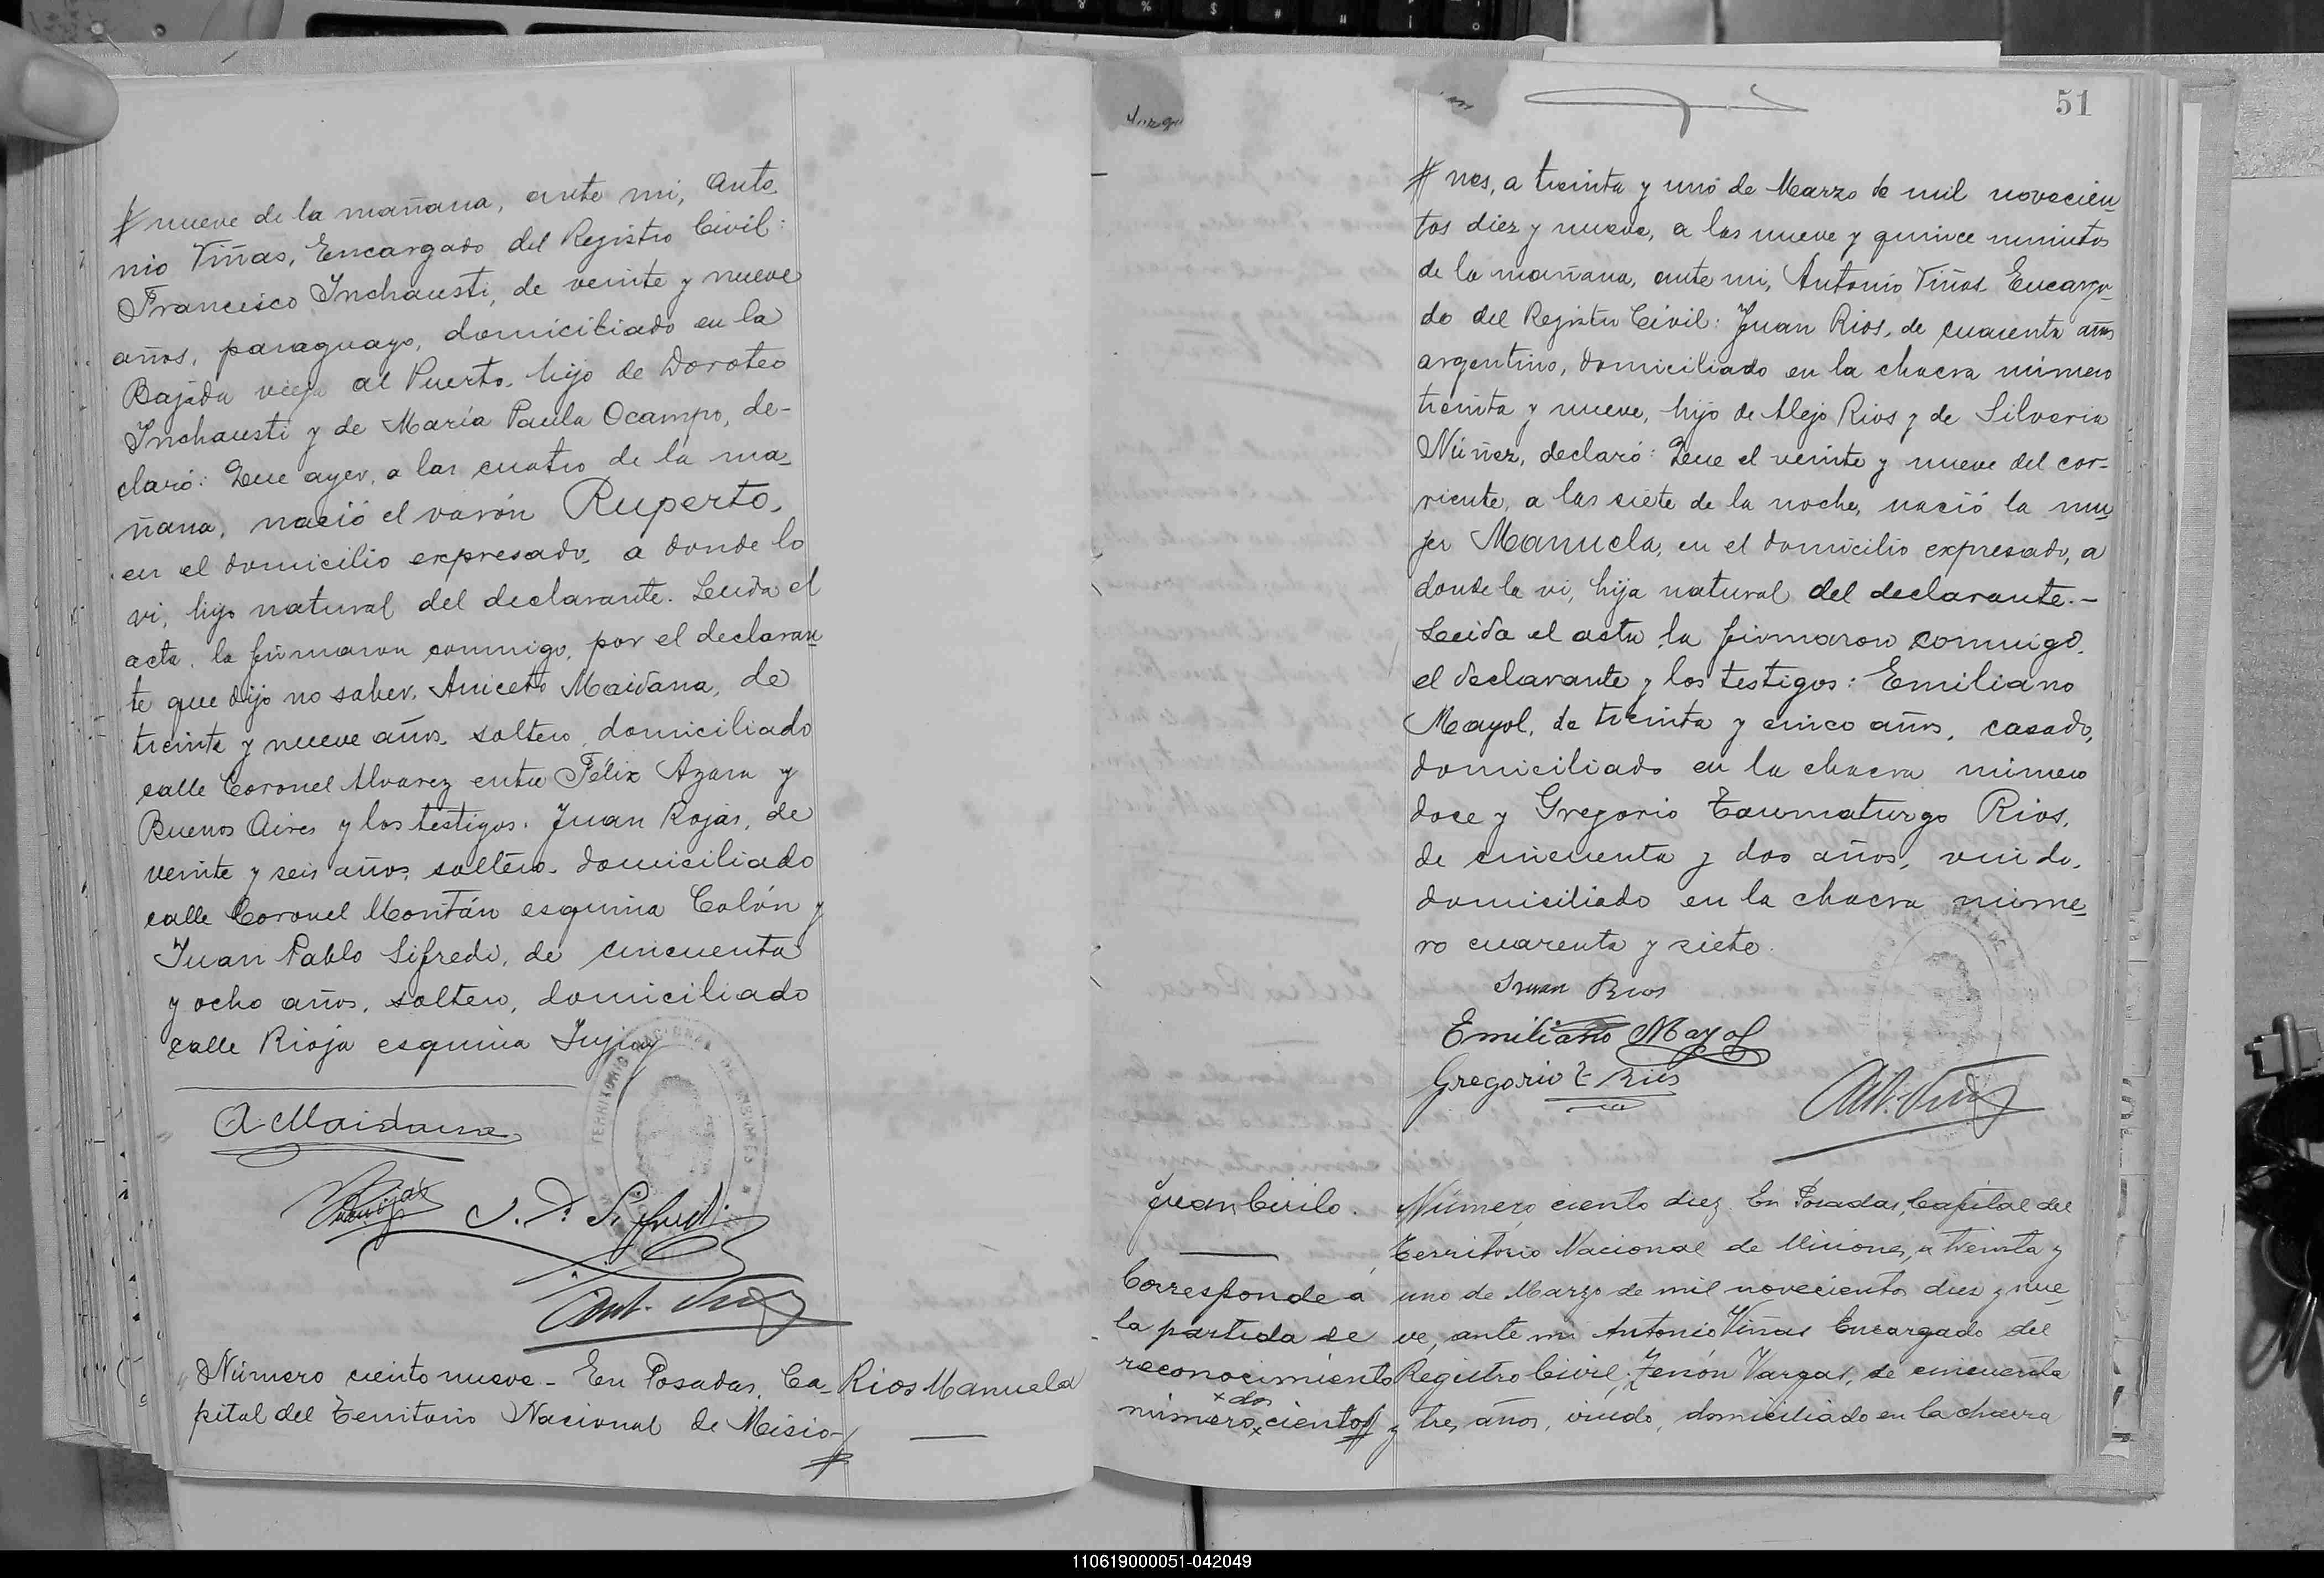 nueve de la mañana, ante mi, Anto
nio Viñas, Encargado del Registro Civil:
Francisco Inchausti, de veinte y nueve
años, paraguayo, domiciliado en la
Bajada vieja al Puerto, hijo de Doroteo
Inchausti y de María Paula Ocampo, de-
claró: Que ayer, a las cuatro de la ma-
ñana, nació el varón Ruperto,
en el domicilio expresado, a donde lo
vi, hijo natural del declarante. Leida el
acta, la firmaron conmigo, por el declaran
te que dijo no saber, Aniceto Maidana, de
treinta y nueve años, soltero, domiciliado
calle Coronel Alvarez entre Félix Azara y
Buenos Aires y los testigos: Juan Rojas, de
veinte y seis años, soltero, domiciliado
calle Coronel Montán esquina Colón y
Juan Pablo Sifredi, de cincuenta
y ocho años, soltero, domiciliado
calle Rioja esquina Jujuy
A. Maidana
J. P. Sifredi
Ant. Viñas
Número ciento nueve - En Posadas, Ca-
pital del Territorio Nacional de Misio-
Rios Manuela
51
nes, a treinta y uno de Marzo de mil novecien-
tos diez y nueve, a las nueve y quince minutos
de la mañana, ante mi, Antonio Viñas Encarga-
do del Registro Civil: Juan Rios, de cuarenta años
argentino, domiciliado en la chacra número
treinta y nueve, hijo de Alejo Rios y de Silveria
Núñez, declaró: Que el veinte y nueve del cor-
riente, a las siete de la noche, nació la mu-
jer Manuela, en el domicilio expresado, a
donde la vi, hija natural del declarante.-
Leida el acta, la firmaron conmigo,
el declarante y los testigos: Emiliano
Mayol, de treinta y cinco años, casado,
domiciliado en la chacra número
doce y Gregorio Taumaturgo Rios,
de cincuenta y dos años, viudo,
domiciliado en la chacra núme-
ro cuarenta y siete.
Juan Rios
Emiliano Mayol
Gregorio T Rios
Ant. Viñas
Juan Cirilo.
Corresponde á
la partida de
reconocimiento
x dos
número x ciento
Número ciento diez. En Posadas, Capital del
Territorio Nacional de Misiones, a treinta y
uno de Marzo de mil novecientos diez y nue-
ve, ante mi Antonio Viñas Encargado del
Registro Civil; Zenón Vargas, de cincuenta
y tres años, viudo, domiciliado en la chacra
110619000051-042049